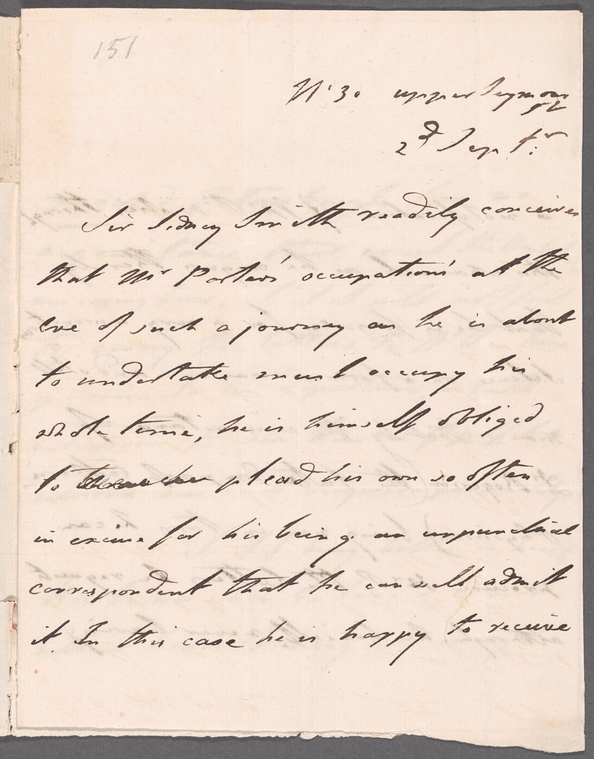 151
No 30 upper Seymour
St
2d Sepr:
Sir Sidney Smith readily conceives
that Mr Porter's occupations at the
eve of such a journey as he is about
to undertake must occupy his
whole time, he is himself obliged
to plead his own so often
in excuse for his being an unpunctual
correspondent that he can well admit
it. In this case he is happy to receive